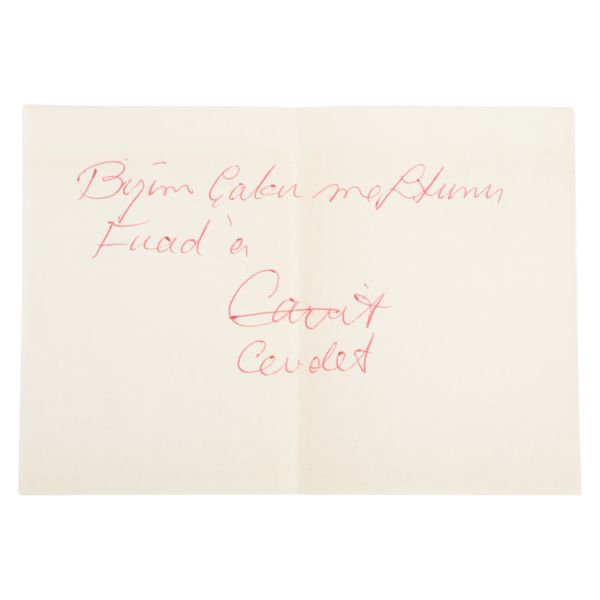 Bizim Çakır meftunu
Fuad'a
Cavit
Cevdet